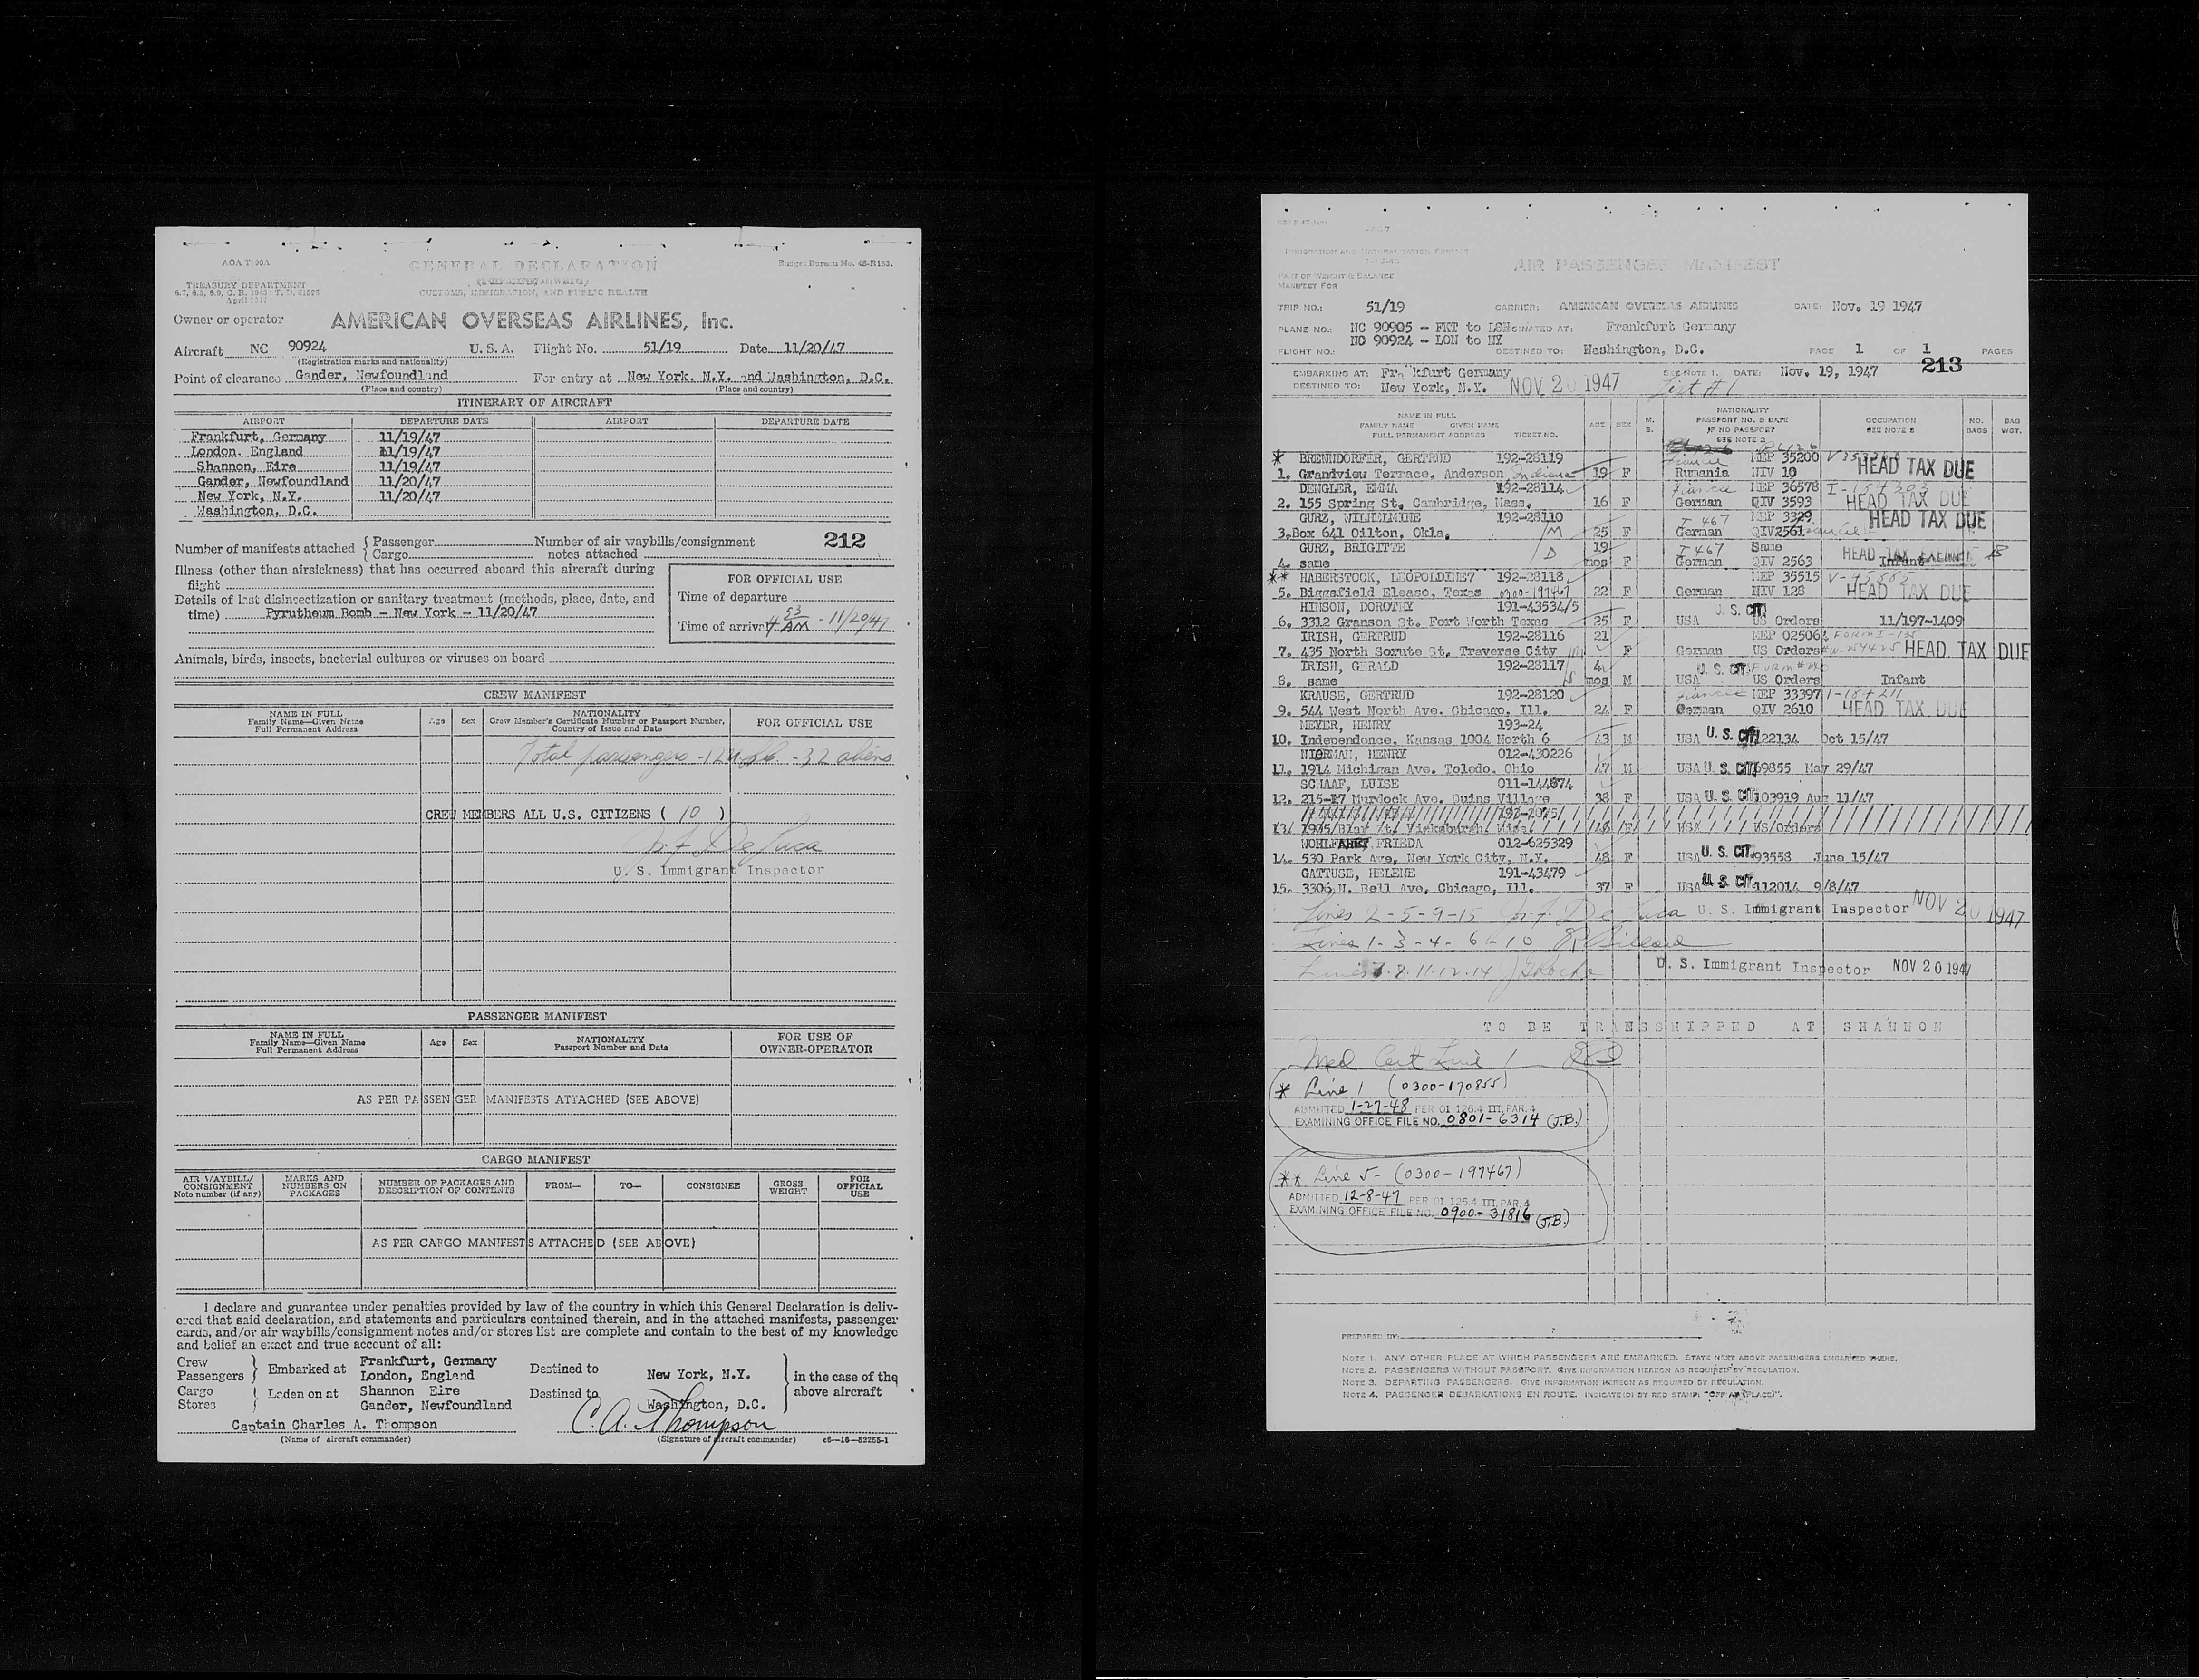 AOA T-30A
GENERAL DECLARATION
Budget Bureau No. 48-R153.
TREASURY DEPARTMENT
CUSTOMS, IMMIGRATION, AND PUBLIC HEALTH
April 1947
Owner or operator AMERICAN OVERSEAS AIRLINES, Inc.
Aircraft NC 90924 U.S.A. Flight No. 51/19 Date 11/20/47
(Registration marks and nationality)
Point of clearance Gander, Newfoundland For entry at New York. N.Y. and Washington, D.C.
(Place and country) (Place and country)
ITINERARY OF AIRCRAFT
AIRPORT DEPARTURE DATE AIRPORT DEPARTURE DATE
Frankfurt, Germany 11/19/47
London. England 11/19/47
Shannon, Eire 11/19/47
Gander, Newfoundland 11/20/47
New York, N.Y. 11/20/47
Washington, D.C.
Number of manifests attached { Passenger Number of air waybills/consignment 212
{ Cargo notes attached
Illness (other than airsickness) that has occurred aboard this aircraft during
flight
Details of last disinsectization or sanitary treatment (methods, place, date, and
time) Pyrutheum Bomb - New York - 11/20/47
FOR OFFICIAL USE
Time of departure
Time of arrival 4 53 AM - 11/20/47
Animals, birds, insects, bacterial cultures or viruses on board
CREW MANIFEST
NAME IN FULL
Family Name—Given Name
Full Permanent Address
Age Sex
NATIONALITY
Crew Member's Certificate Number or Passport Number,
Country of Issue and Date
FOR OFFICIAL USE
Total passengers - 32 aliens
CREW MEMBERS ALL U.S. CITIZENS ( 10 )
J. F. De Luca
U. S. Immigrant Inspector
PASSENGER MANIFEST
NAME IN FULL
Family Name—Given Name
Full Permanent Address
Age Sex
NATIONALITY
Passport Number and Date
FOR USE OF
OWNER-OPERATOR
AS PER PASSENGER MANIFESTS ATTACHED (SEE ABOVE)
CARGO MANIFEST
AIR WAYBILL/
CONSIGNMENT
Note number (if any)
MARKS AND
NUMBERS ON
PACKAGES
NUMBER OF PACKAGES AND
DESCRIPTION OF CONTENTS
FROM— TO— CONSIGNEE
GROSS
WEIGHT
FOR
OFFICIAL
USE
AS PER CARGO MANIFESTS ATTACHED (SEE ABOVE)
I declare and guarantee under penalties provided by law of the country in which this General Declaration is deliv-
ered that said declaration, and statements and particulars contained therein, and in the attached manifests, passenger
cards, and/or air waybills/consignment notes and/or stores list are complete and contain to the best of my knowledge
and belief an exact and true account of all:
Crew
Passengers } Embarked at Frankfurt, Germany
London, England Destined to New York, N.Y. } in the case of the
Cargo
Stores } Laden on at Shannon Eire
Gander, Newfoundland Destined to Washington, D.C. above aircraft
Captain Charles A. Thompson C. A. Thompson
(Name of aircraft commander) (Signature of aircraft commander) c6—16—52255-1
IMMIGRATION AND NATURALIZATION SERVICE
AIR PASSENGER MANIFEST
PART OF WEIGHT & BALANCE
MANIFEST FOR
TRIP NO.: 51/19 CARRIER: AMERICAN OVERSEAS AIRLINES DATE: Nov. 19 1947
PLANE NO.: NC 90905 - FKT to LON ORIGINATED AT: Frankfurt Germany
NC 90924 - LON to NY
FLIGHT NO.: DESTINED TO: Washington, D.C. PAGE 1 OF 1 PAGES
213
EMBARKING AT: Frankfurt Germany SEE NOTE 1. DATE: Nov. 19, 1947
DESTINED TO: New York, N.Y. NOV 20 1947 List # 1
NAME IN FULL
FAMILY NAME GIVEN NAME
FULL PERMANENT ADDRESS TICKET NO.
AGE SEX M. S.
NATIONALITY
PASSPORT NO. & DATE
IF NO PASSPORT
SEE NOTE 2
OCCUPATION
SEE NOTE 3
NO. BAGS
BAG WGT.
* BRENNDORFER, GERTRUD 192-28119 MEP 35200
1. Grandview Terrace, Anderson Indiana 19 F Rumania NIV 10 HEAD TAX DUE
DENGLER, EMMA 192-28114 Fiancee MEP 36578 I-154303
2. 155 Spring St. Cambridge, Mass. 16 F German QIV 3593 HEAD TAX DUE
GURZ, WILHELMINE 192-28110 I 467 MEP 3329 HEAD TAX DUE
3. Box 641 Oilton, Okla. M 25 F German QIV2561
GURZ, BRIGITTE D 19 I 467 Same HEAD TAX EXEMPT
4. same mos F German QIV 2563 Infant
** HABERSTOCK, LEOPOLDINE7 192-28118 MEP 35515
5. Biggsfield Eleaso, Texas 0300-197467 22 F German NIV 128 HEAD TAX DUE
HINSON, DOROTHY 191-43534/5 U. S. CIT
6. 3312 Granson St. Fort Worth Texas 25 F USA US Orders 11/197-1409
IRISH, GERTRUD 192-28116 21 MEP 02506
7. 435 North Sorute St. Traverse City F German US Orders HEAD TAX DUE
IRISH, GERALD 192-28117 4 U. S. CIT
8. same mos M USA US Orders Infant
KRAUSE, GERTRUD 192-28120 Fiancee MEP 33397 I-184211
9. 544 West North Ave. Chicago, Ill. 24 F German QIV 2610 HEAD TAX DUE
MEYER, HENRY 193-24
10. Independence, Kansas 1004 North 6 43 M USA U. S. CIT 122134 Oct 15/47
NIERMAN, HENRY 012-430226
11. 1914 Michigan Ave. Toledo. Ohio 47 M USA U. S. CIT 69855 May 29/47
SCHAAF, LUISE 011-144874
12. 215-17 Murdock Ave. Quins Village 38 F USA U. S. CIT 103919 Aug 11/47
13. USA US/Orders
WOHLFAHRT, FRIEDA 012-625329
14. 530 Park Ave, New York City, N.Y. 48 F USA U. S. CIT. 93553 June 15/47
GATTUSE, HELENE 191-43479
15. 3306 N. Bell Ave. Chicago, Ill. 37 F USA U. S. CIT 112014 9/8/47
Lines 2-5-9-15 J. F. De Luca U. S. Immigrant Inspector NOV 20 1947
Lines 1-3-4-6-10
Lines 7.8.11.12.14 U. S. Immigrant Inspector NOV 20 1947
TO BE TRANSSHIPPED AT SHANNON
Med Cert Line 1
* Line 1 (0300-170855)
ADMITTED 1-27-48 PER OI 126.4 III, PAR. 4
EXAMINING OFFICE FILE NO. 0801-6314 (J.B.)
** Line 5- (0300-197467)
ADMITTED 12-8-47 PER OI 126.4 III, PAR. 4
EXAMINING OFFICE FILE NO. 0900-31816 (J.B.)
PREPARED BY:
NOTE 1. ANY OTHER PLACE AT WHICH PASSENGERS ARE EMBARKED. STATE NEXT ABOVE PASSENGERS EMBARKED THERE.
NOTE 2. PASSENGERS WITHOUT PASSPORT. GIVE INFORMATION HEREON AS REQUIRED BY REGULATION.
NOTE 3. DEPARTING PASSENGERS. GIVE INFORMATION HEREON AS REQUIRED BY REGULATION.
NOTE 4. PASSENGER DEBARKATIONS EN ROUTE. INDICATED BY RED STAMP: "OFF AT (PLACE)".